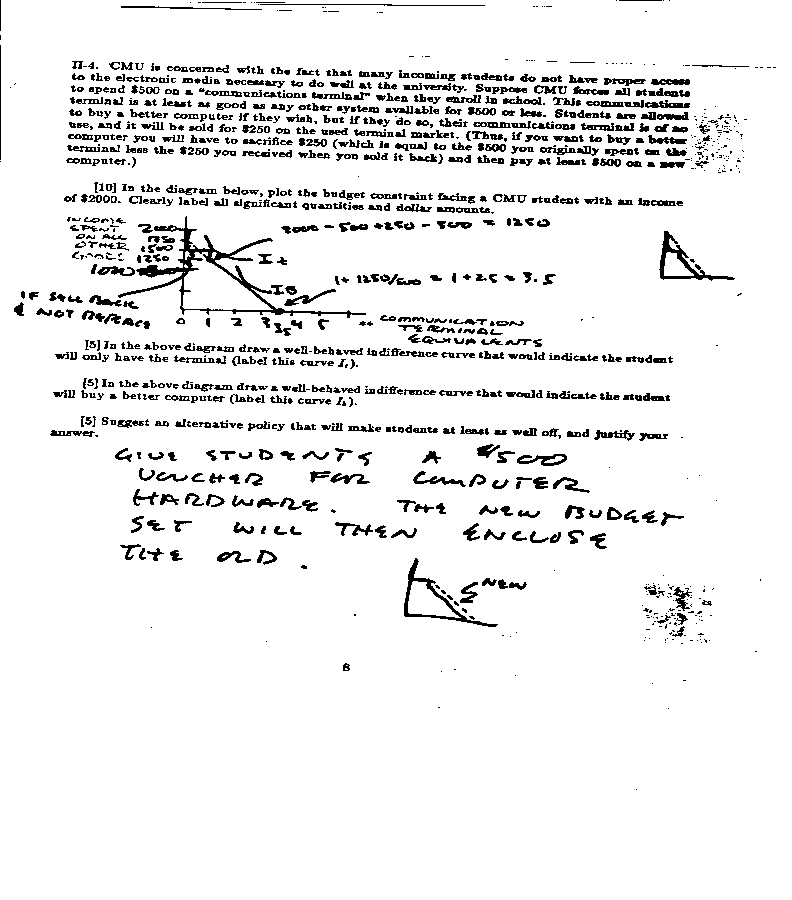 II-4. CMU is concerned with the fact that many incoming students do not have proper access
to the electronic media necessary to do well at the university. Suppose CMU forces all students
to spend $500 on a "communications terminal" when they enroll in school. This communications
terminal is at least as good as any other system available for $500 or less. Students are allowed
to buy a better computer if they wish, but if they do so, their communications terminal is of no
use, and it will be sold for $250 on the used terminal market. (Thus, if you want to buy a better
computer you will have to sacrifice $250 (which is equal to the $500 you originally spent on the
terminal less the $250 you received when you sold it back) and then pay at least $500 on a new
computer.)
[10] In the diagram below, plot the budget constraint facing a CMU student with an income
of $2000. Clearly label all significant quantities and dollar amounts.
INCOME
SPENT
ON ALL
OTHER
GOODS
2000
1750
1500
1250
1000
2000 - 500 + 250 - 500 = 1250
It
IB
1 + 1250/500 = 1 + 2.5 = 3.5
IF SELL BACK
& NOT REPLACE
0 1 2 3 3.5 4 5
COMMUNICATION
TERMINAL
EQUIVALENTS
[5] In the above diagram draw a well-behaved indifference curve that would indicate the student
will only have the terminal (label this curve It).
[5] In the above diagram draw a well-behaved indifference curve that would indicate the student
will buy a better computer (label this curve Ib).
[5] Suggest an alternative policy that will make students at least as well off, and justify your
answer.
GIVE STUDENTS A $500
VOUCHER FOR COMPUTER
HARDWARE. THE NEW BUDGET
SET WILL THEN ENCLOSE
THE OLD.
NEW